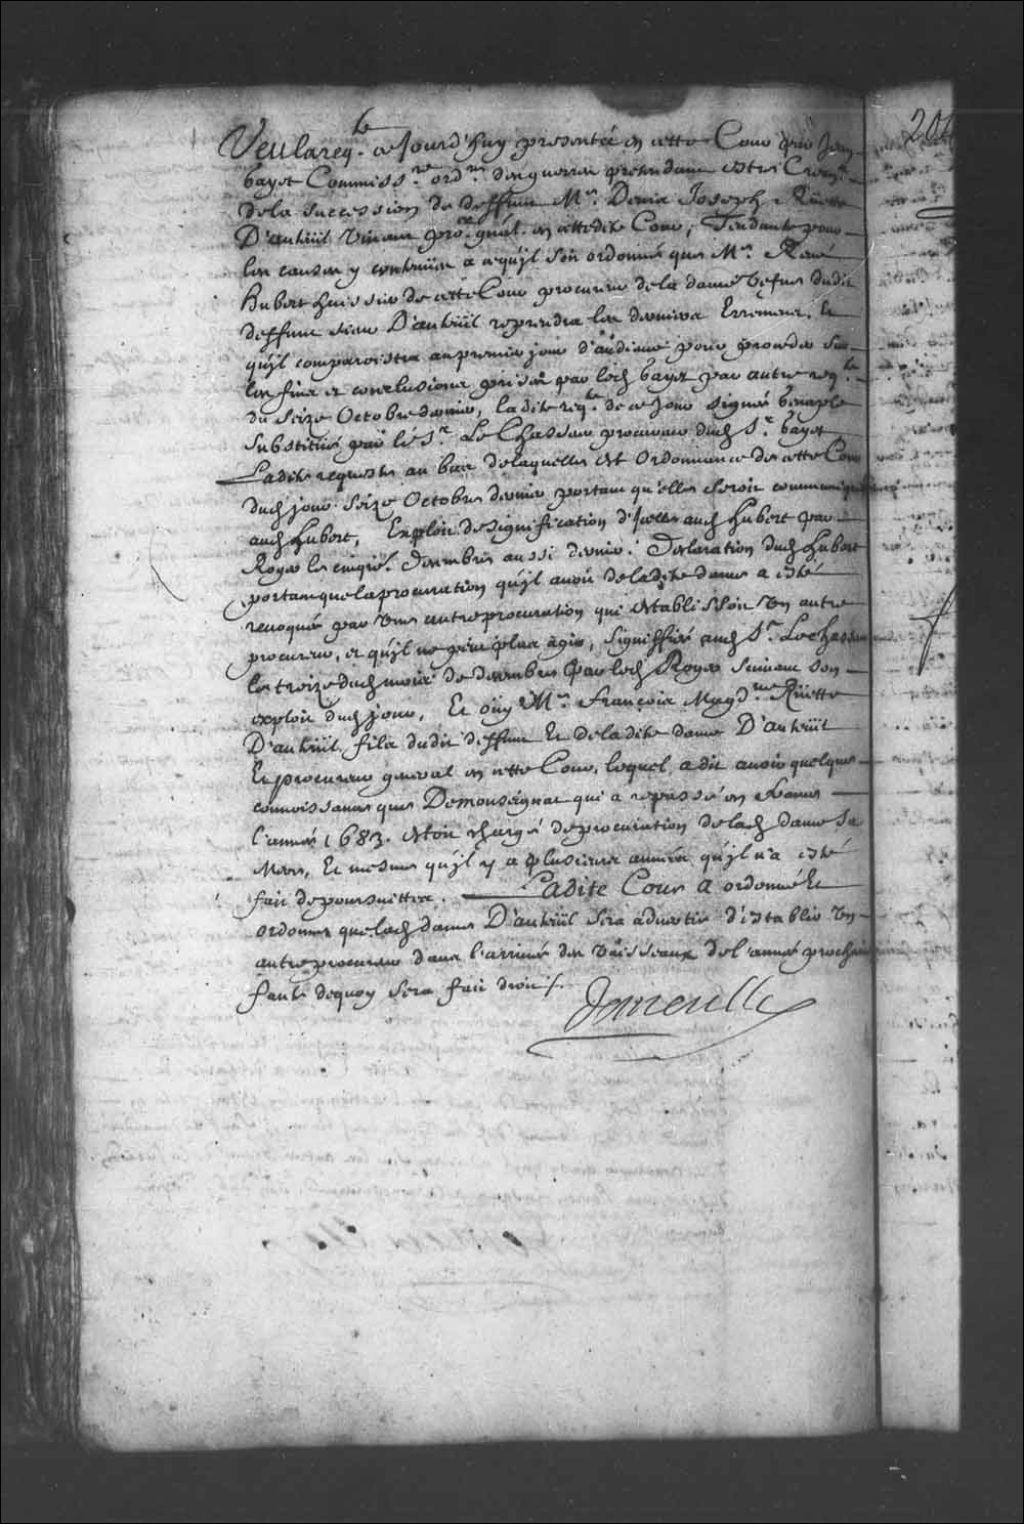 204
Veu la req.te ce Jourd'huy presentée en cette Cour par Jean
bayot Commiss.re ord.re des guerres pretendant estre Crean.er
de la succession de deffunt M.re Denis Joseph Rüette
D'auteüil vivant pro.r gnâl en cettedite Cour, Tendante pour
les causes y contenües a ce qu'jl soit ordonné que M.e René
hubert huissier de cette Cour procureur de la dame vefue dudit
deffunt sieur D'auteüil reprendra les derniers Erremens, et
qu'jl comparoistra au premier jour d'audiance pour proceder sur
les fins et conclusions prises par led. bayot par autre req.te
du seize Octobre dernier, ladite req.te de ce jour signée
substitué par le S.r LeChasseur procureur dud. S.r bayot
Ladite requeste au bas de laquelle est Ordonnance de cette Cour
dud. jour seize Octobre dernier portant qu'elle seroit communiquée
aud. hubert, Exploit de signification d'Jcelle aud. hubert par
Roger le cinqie. decembre aussi dernier. Declaration dud. hubert
portant que la procuration qu'jl auoit de ladite dame a esté
reuoquée par une autre procuration qui establissoit un autre
procureur, et qu'jl ne peut plus agir, signiffiée aud. S.r Lechasseur
le treize dud. mois de decembre par led. Roger suiuant son
exploit dud. jour, Et oüy M.e François Magd.ne Rüette
D'auteüil, fils dudit deffunt et de ladite dame D'auteüil
Et procureur general en cette Cour, lequel a dit auoir quelque
connoissance que Demonseignat qui a repassé en France
l'année 1683. estoit chargé de procuration de lad. dame sa
Mere, Et mesme qu'jl y a plusieurs années qu'jl n'a esté
fait de poursuittes. Ladite Cour a ordonné et
ordonne que lad. dame D'auteüil sera aduertie d'establir un
autre procureur dans l'arriuée des vaisseaux de l'année prochaine
faute dequoy sera fait droit.